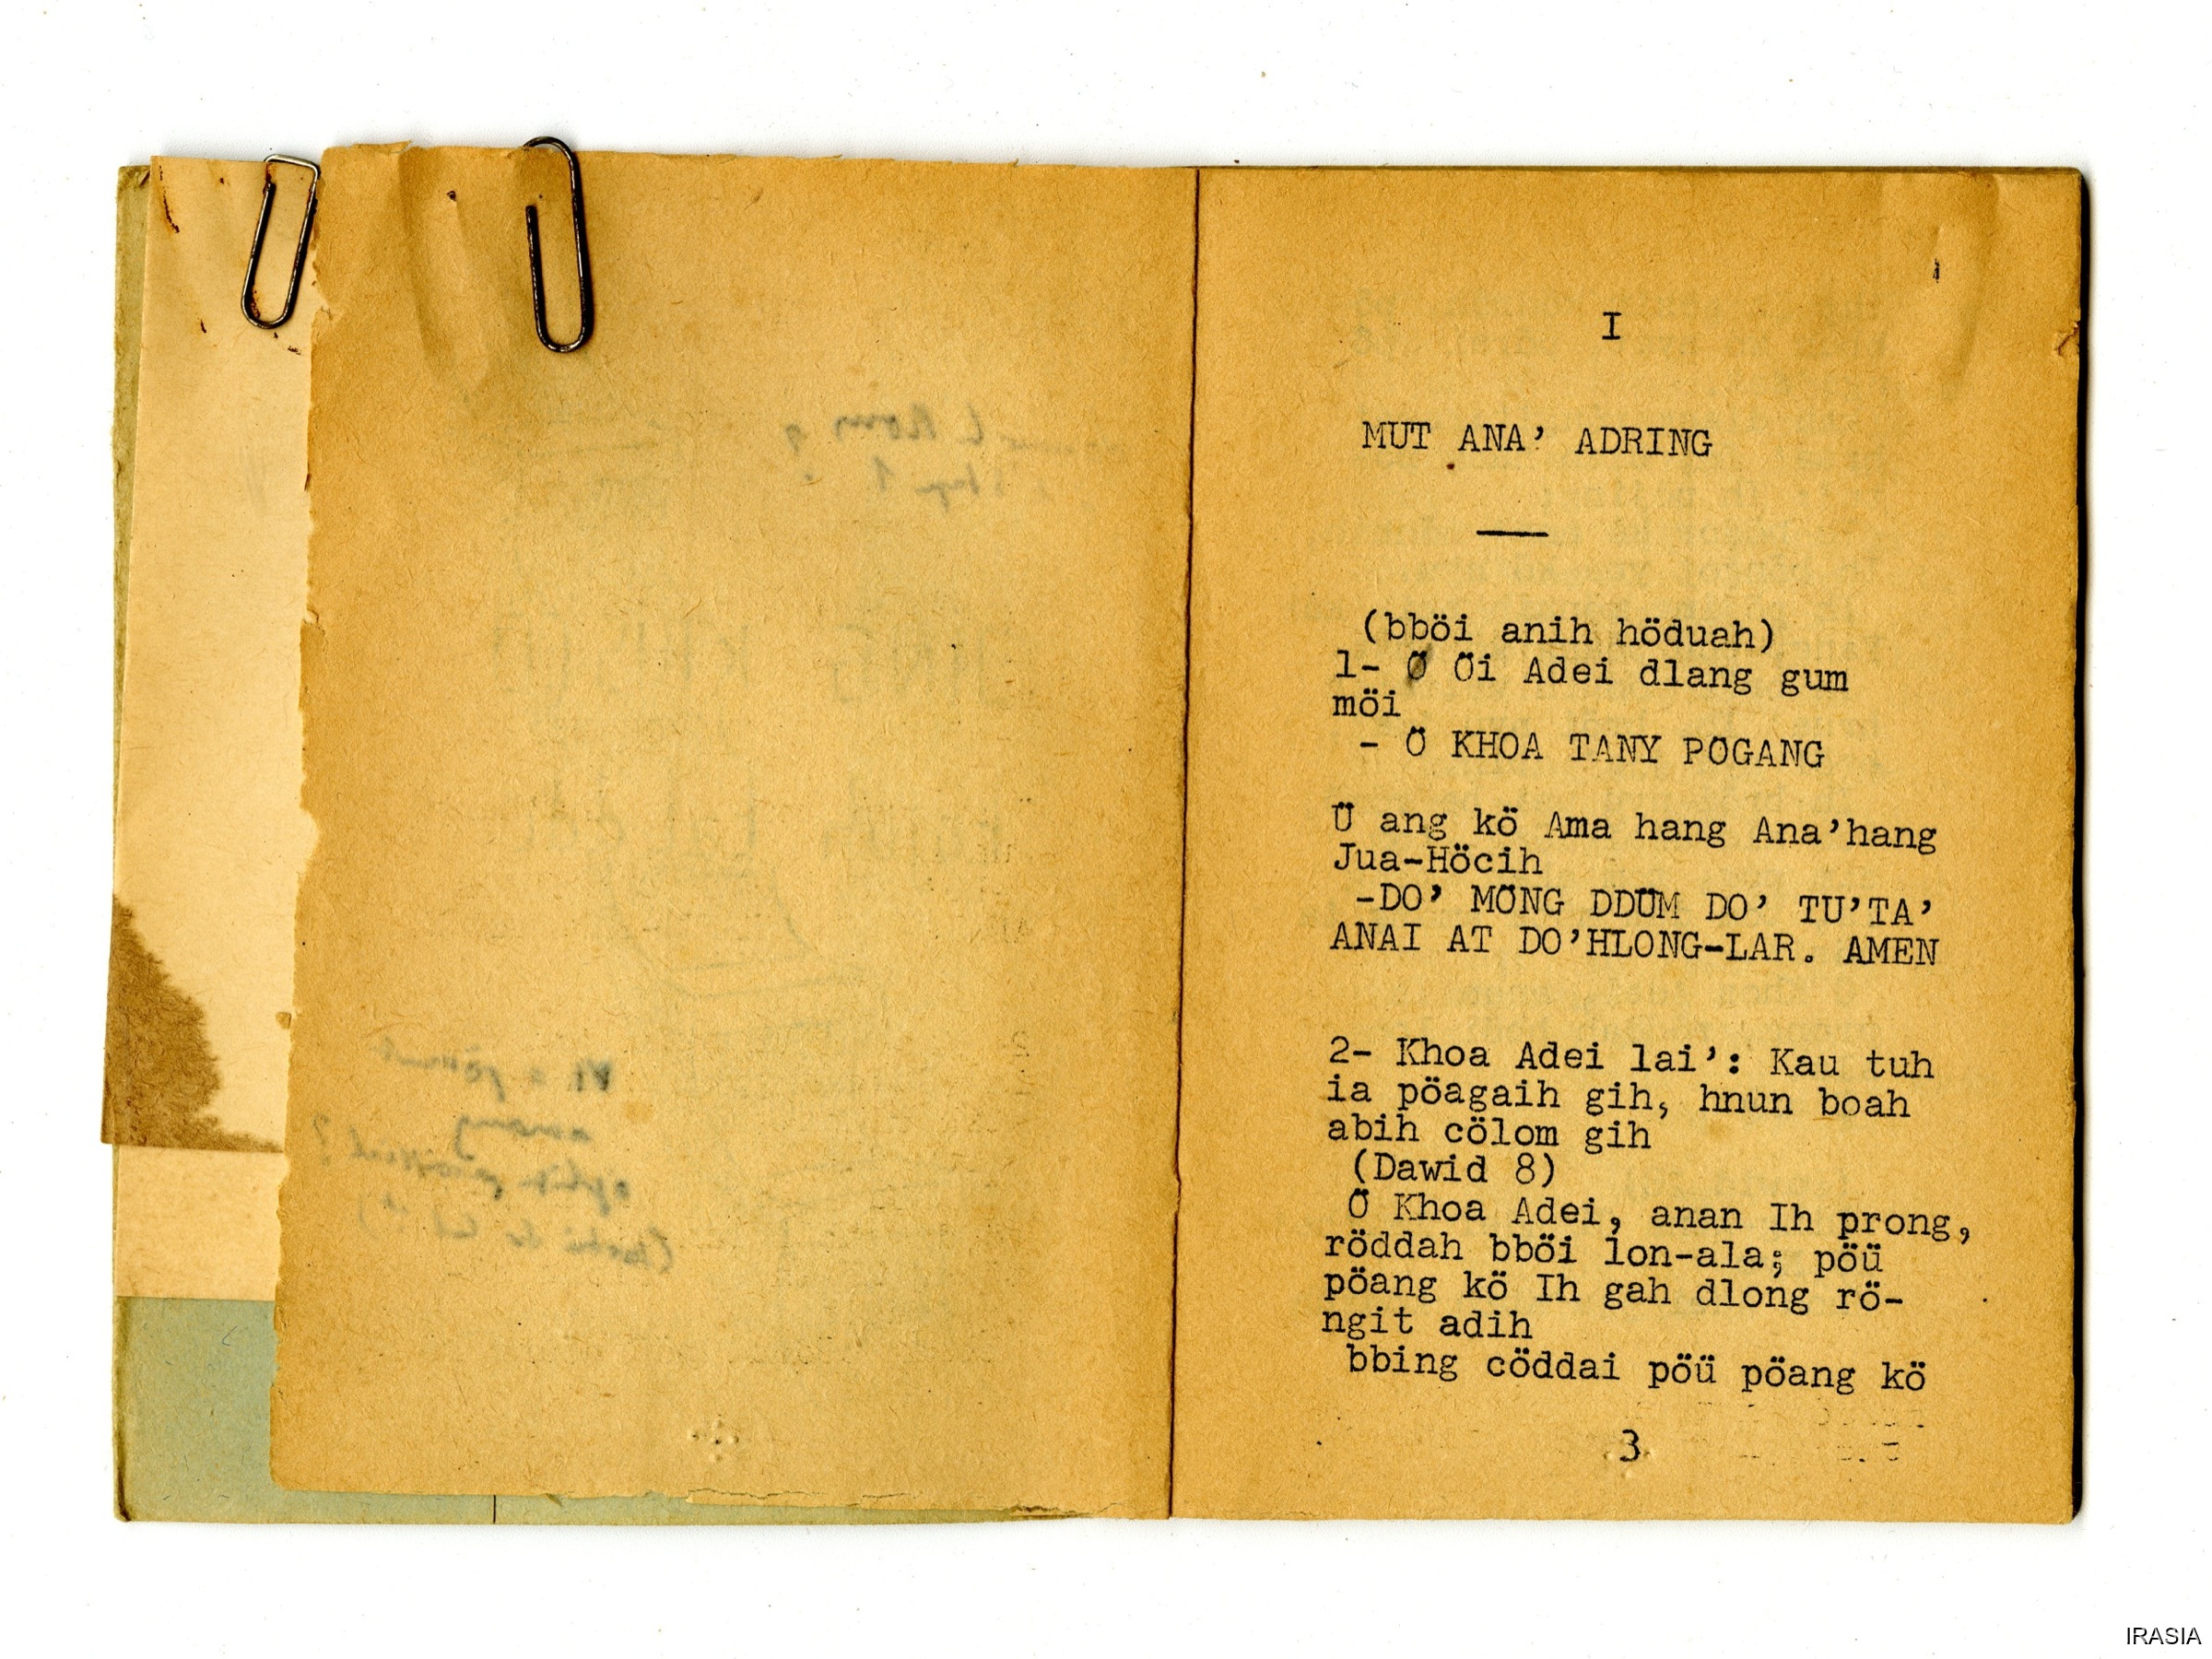 I
MUT ANA’ ADRING
(bböi anih höduah)
1- Ö Öi Adei dlang gum
möi
- Ö KHOA TANY PÖGANG
Ü ang kö Ama hang Ana’hang
Jua-Höcih
-DO’ MÖNG DDÜM DO’ TU’TA’
ANAI AT DO’HLONG-LAR. AMEN
2- Khoa Adei lai’: Kau tuh
ia pöagaih gih, hnun boah
abih cölom gih
(Dawid 8)
Ö Khoa Adei, anan Ih prong,
röddah bböi lon-ala; pöü
pöang kö Ih gah dlong rö-
ngit adih
bbing cöddai pöü pöang kö
3
IRASIA